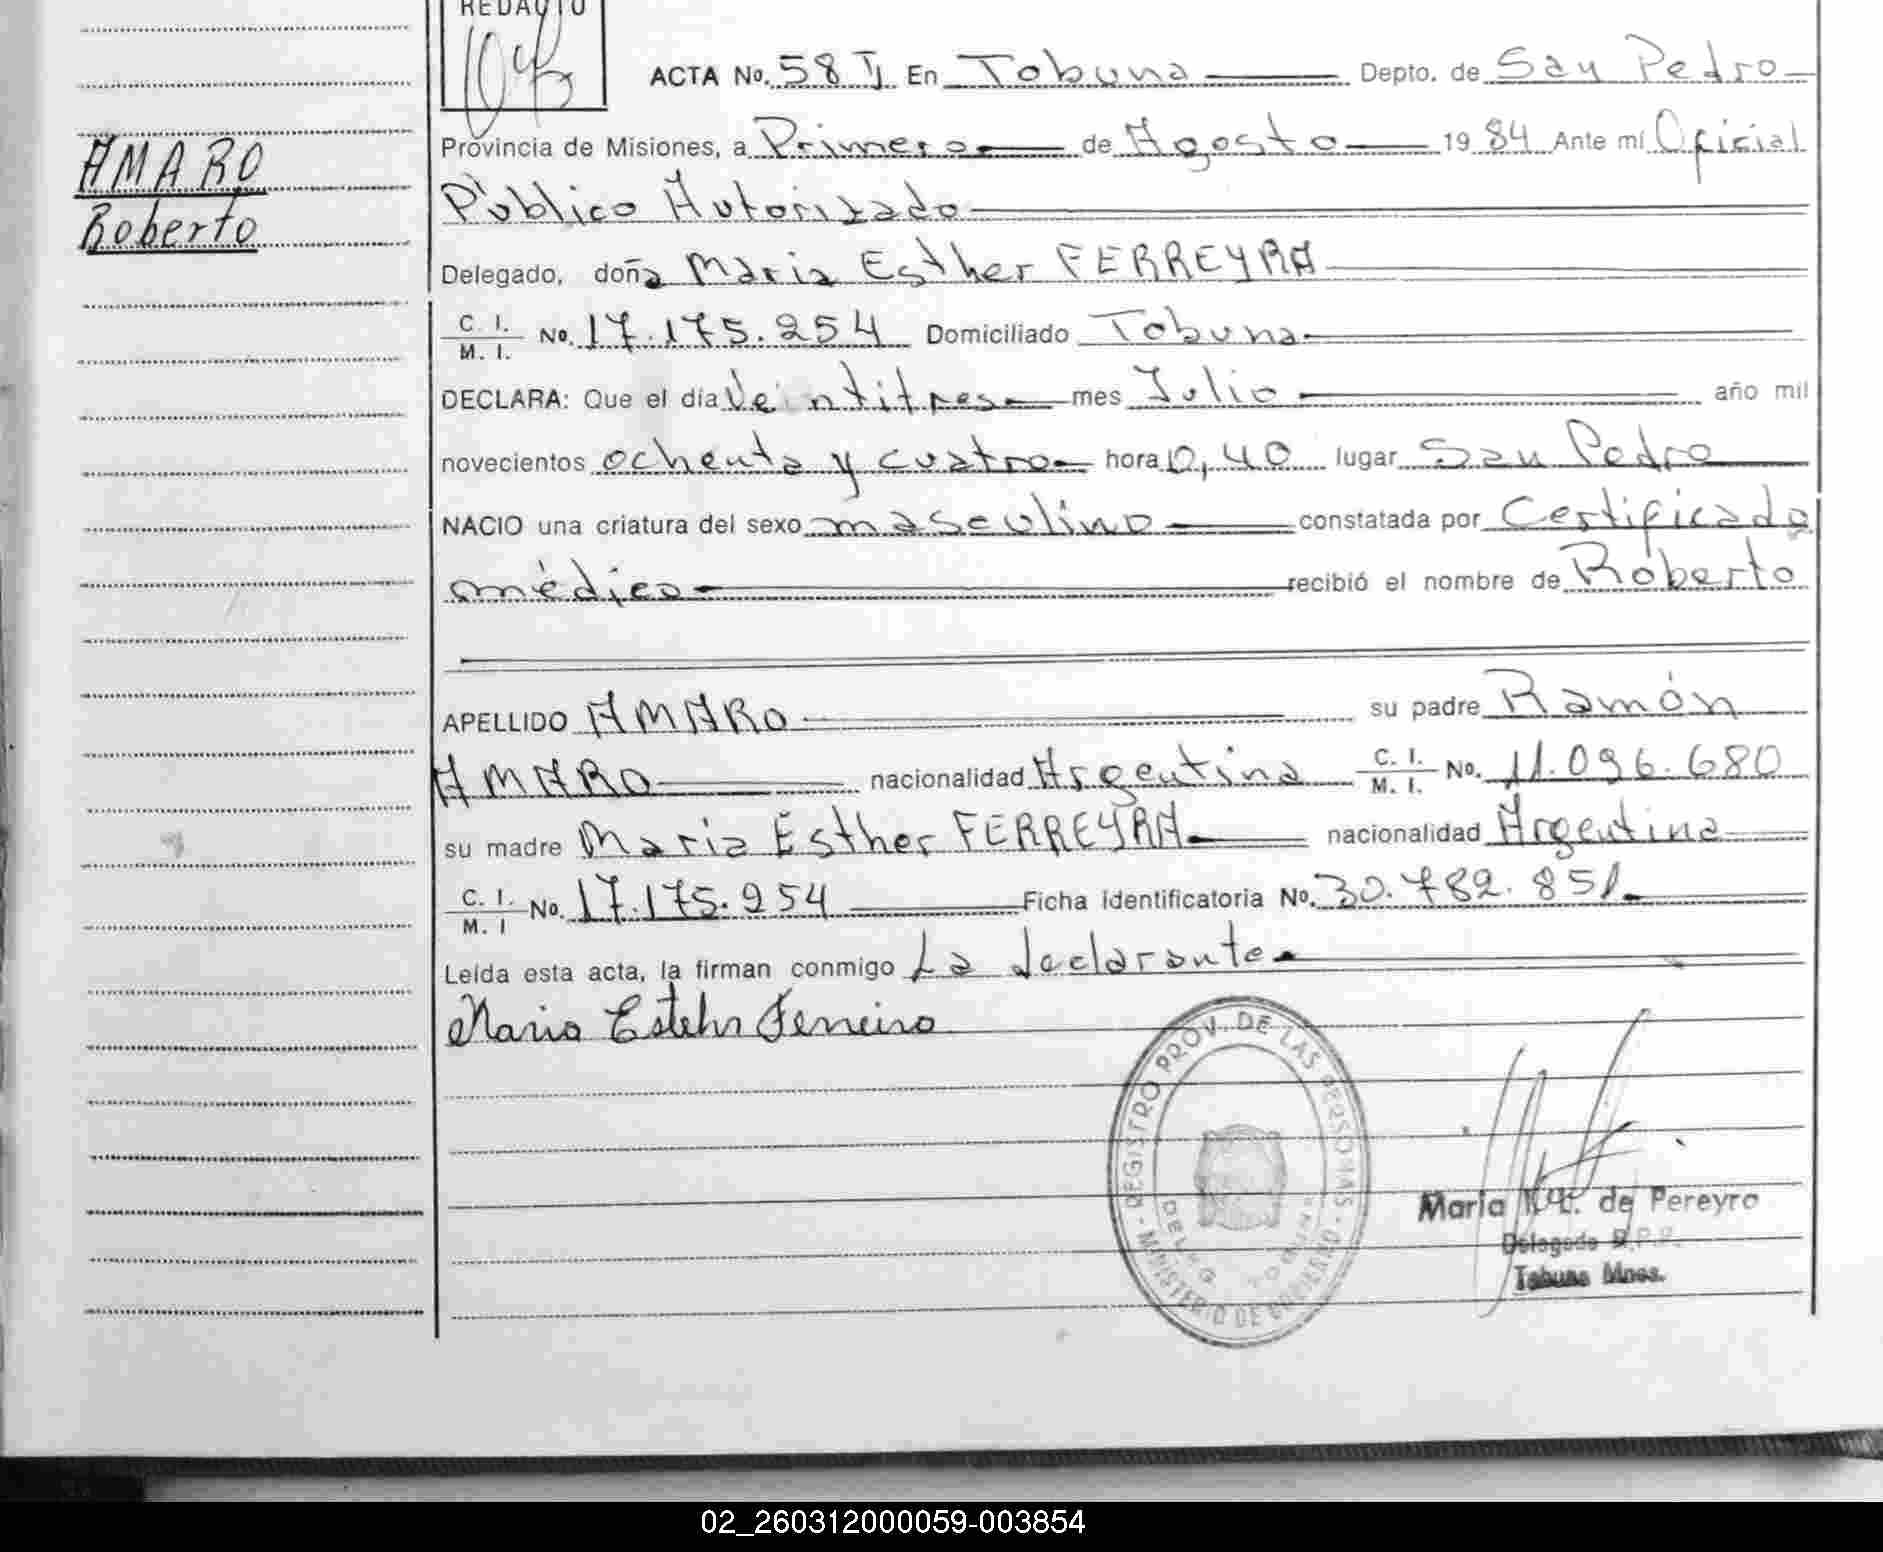 REDACTO
AMARO
Roberto
ACTA No. 58 II En Tobuna Depto. de San Pedro
Provincia de Misiones, a Primero de Agosto 1984 Ante mí Oficial
Público Autorizado
Delegado, doña Maria Esther FERREYRA
C. I. / M. I. No. 17.175.254 Domiciliado Tobuna
DECLARA: Que el día Veintitres mes Julio año mil
novecientos ochenta y cuatro hora 0,40 lugar San Pedro
NACIO una criatura del sexo masculino constatada por Certificado
médico recibió el nombre de Roberto
APELLIDO AMARO su padre Ramón
AMARO nacionalidad Argentina C. I. / M. I. No. 11.096.680
su madre Maria Esther FERREYRA nacionalidad Argentina
C. I. / M. I No. 17.175.254 Ficha identificatoria No. 30.782.851
Leída esta acta, la firman conmigo La declarante
Maria Estehr Ferreira
REGISTRO PROV. DE LAS PERSONAS - MINISTERIO DE GOBIERNO -
DELEG. TOBUNA
María de Pereyro
Delegada R.P.P.
Tobuna Mnes.
02_260312000059-003854